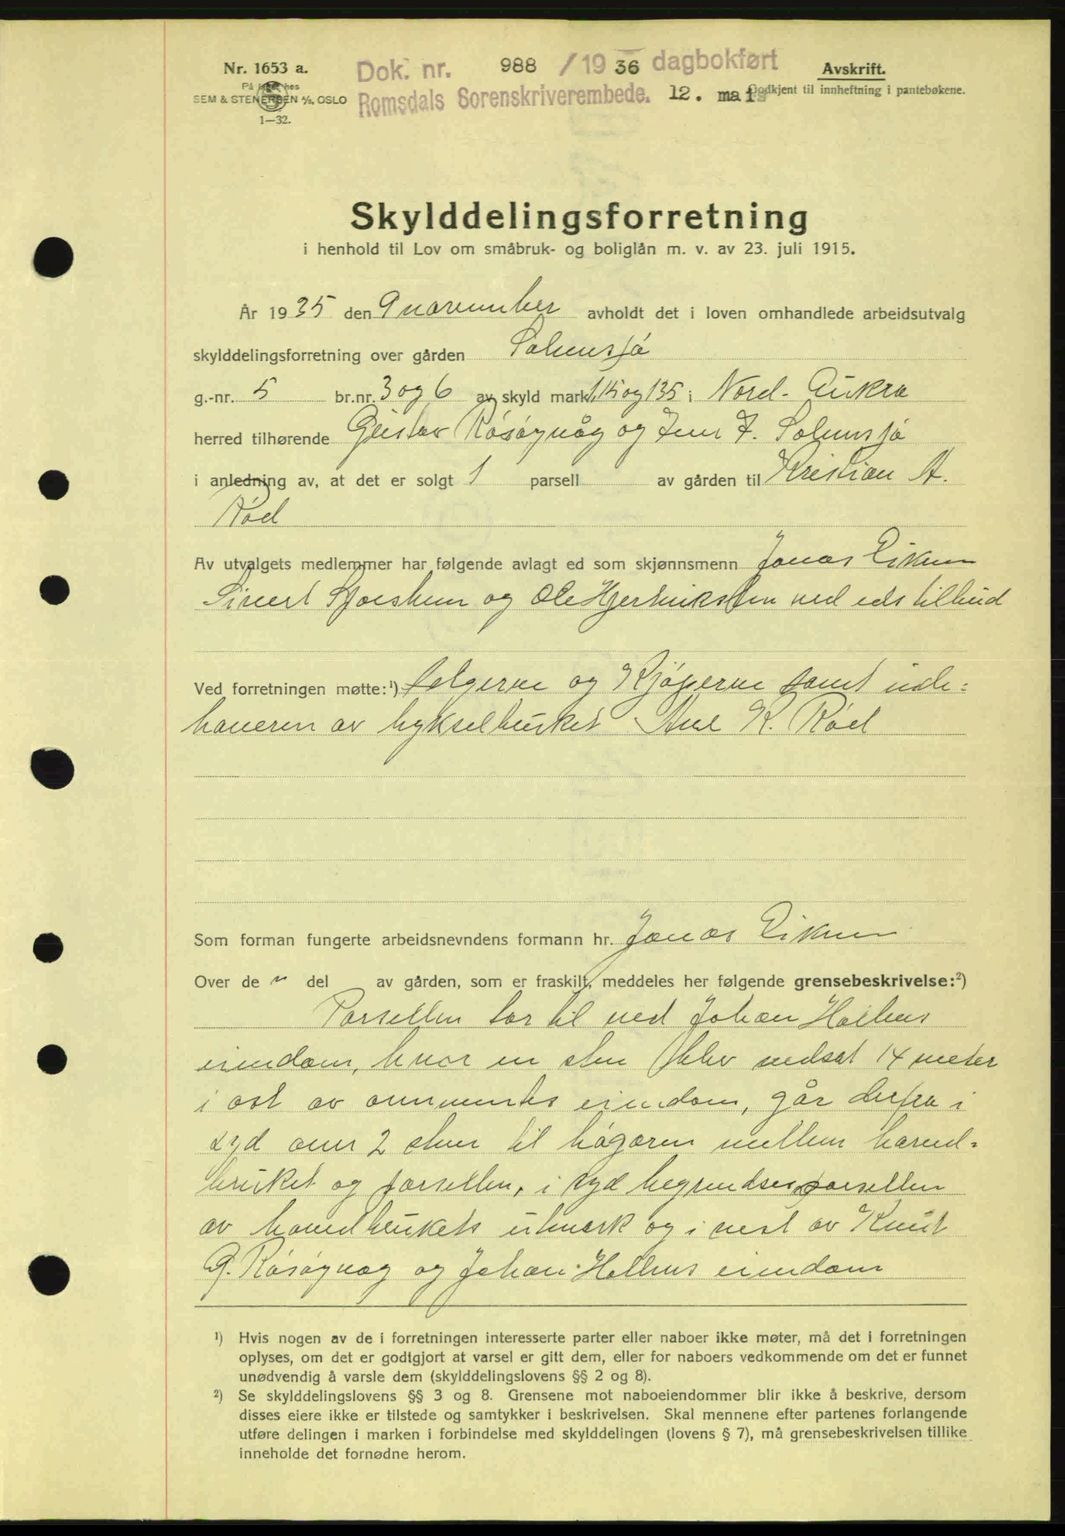 Nr. 1653 a.
På lager hos
SEM & STENERSEN A/S, OSLO
1—32.
Dok. nr. 988 / 19 36 dagbokført
Romsdals Sorenskriverembede. 12. mai
Avskrift.
Godkjent til innheftning i pantebøkene.
Skylddelingsforretning
i henhold til Lov om småbruk- og boliglån m. v. av 23. juli 1915.
År 1935 den 9 november avholdt det i loven omhandlede arbeidsutvalg
skylddelingsforretning over gården Solemsjø
g.-nr. 5 br.nr. 3 og 6 av skyld mark 1,15 og 1,35 i Nord-Aukra
herred tilhørende Gustav Røsøgvåg og Jens F. Solemsjø
i anledning av, at det er solgt 1 parsell av gården til Kristian A.
Rød
Av utvalgets medlemmer har følgende avlagt ed som skjønnsmenn Jonas Eikrem
Sivert og Ole Hjertviksten ved eds tilbud
Ved forretningen møtte:¹) Selgerne og Kjøperne samt inde-
haveren av bykselbruket K. Rød
Som forman fungerte arbeidsnevndens formann hr. Jonas Eikrem
Over de n del av gården, som er fraskilt, meddeles her følgende grensebeskrivelse:²)
Parsellen tar til ved Johan Holhus
eiendom, hvor en sten blev nedsat 14 meter
i ost av eiendom, går derfra i
syd over 2 stener til mellem hoved-
bruket og parsellen, i syd begrendses parsellen
av hovedbrukets utmark og i vest av Knut
G. Røsøgvag og Johan Holhus eiendom
¹) Hvis nogen av de i forretningen interesserte parter eller naboer ikke møter, må det i forretningen
oplyses, om det er godtgjort at varsel er gitt dem, eller for naboers vedkommende om det er funnet
unødvendig å varsle dem (skylddelingslovens §§ 2 og 8).
²) Se skylddelingslovens §§ 3 og 8. Grensene mot naboeiendommer blir ikke å beskrive, dersom
disses eiere ikke er tilstede og samtykker i beskrivelsen. Skal mennene efter partenes forlangende
utføre delingen i marken i forbindelse med skylddelingen (lovens § 7), må grensebeskrivelsen tillike
inneholde det fornødne herom.